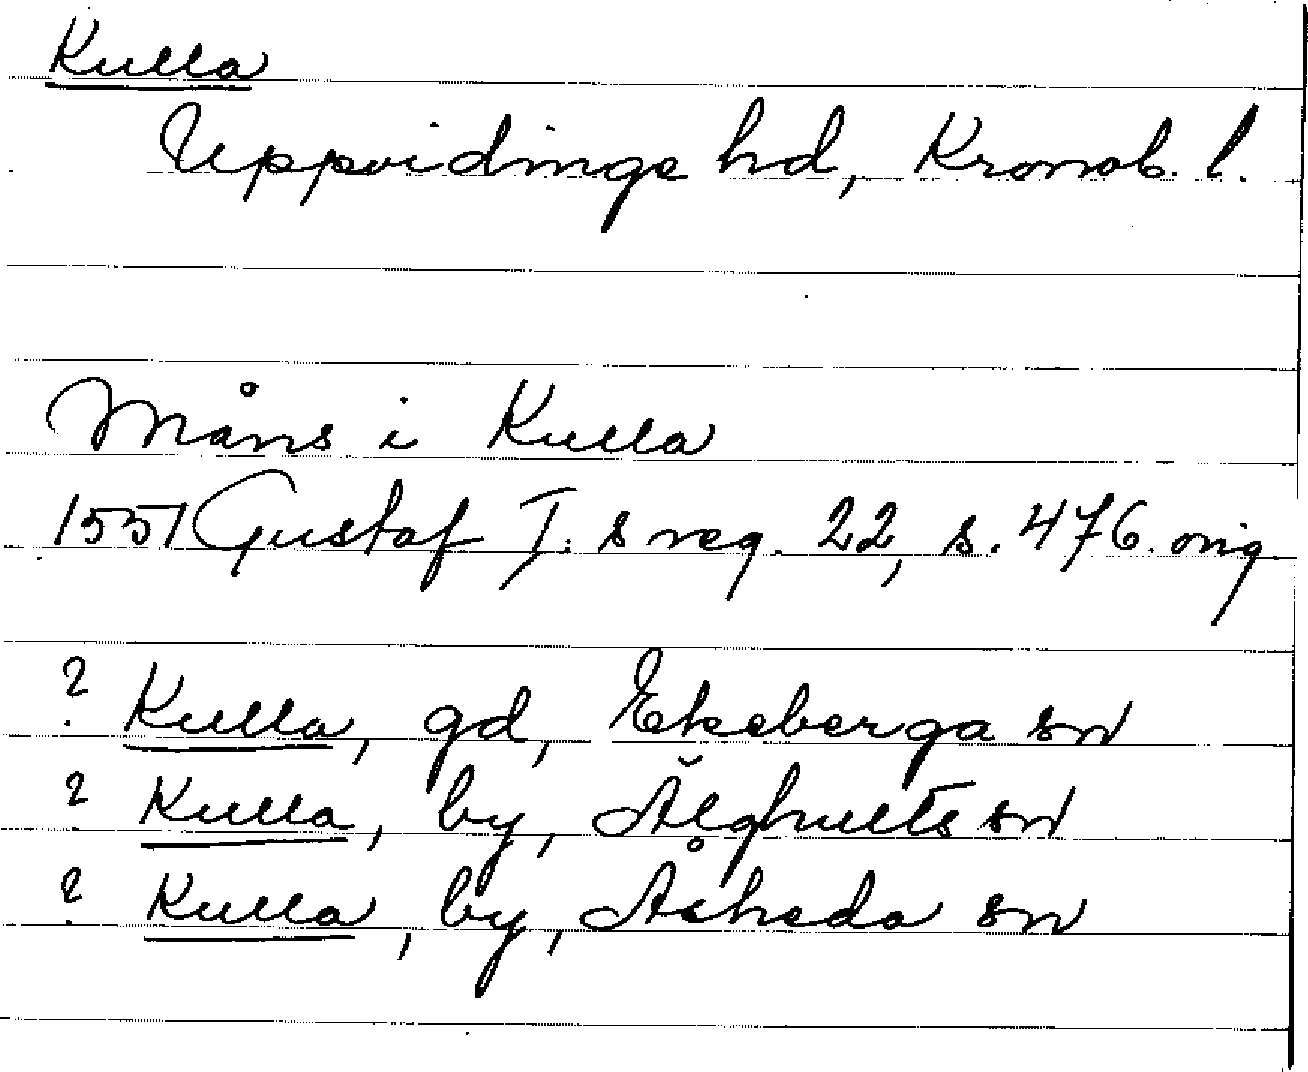 Kulla
Uppvidinge hd, Kronob. l.
Måns i Kulla
1551 Gustaf I:s reg. 22, s. 476. orig
? Kulla, gd, Ekeberga sn
? Kulla, by, Älghults sn
? Kulla, by, Åsheda sn